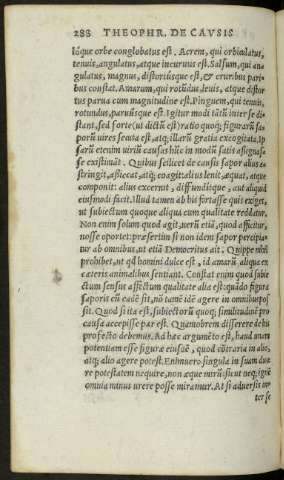 288 THEOPHR. DE CAVSIS
lóque orbe conglobatus est. Acrem, qui orbiculatus,
tenuis, angulatus, atque incuruus est. Salsum, qui an-
gulatus, magnus, distortúsque est, & cruribus pari-
bus constat. Amarum, qui rotũdus, leuis, atque distor
tus parua cum magnitudine est. Pinguem, qui tenuis,
rotundus, paruúsque est. Igitur modi tãtũ inter se di-
stant, sed forte (ut dictũ est) ratio quoq; figurarũ sa-
porũ uires seuta est, atq; illarũ gratia excogitata. Ip
sarũ etenim uirtũ causas hũc in modũ satis assignas-
se existimãt. Quibus scilicet de causis sapor alius a-
stringit, assiccat, atq; coagit: alius lenit, æquat, atque
componit: alius excernit, diffunditque, aut aliud
eiusmodi facit. Illud tamen ab his fortasse quis exiget,
ut subiectum quoque aliqua cum qualitate reddatur.
Non enim solum quod agit, uerũ etiã, quod afficitur,
nosse oportet: præsertim si non idem sapor percipia-
tur ab omnibus, ut etiã Democritus ait. Quippe nihil
prohibet, ut qđ homini dulce est, id amarũ, aliquæ ex
cæteris animalibus sentiant. Constat enim quod subie
ctum sensus affectum qualitate alia est: quãdo figura
saporis cũ eadẽ sit, nõ tamẽ idẽ agere in omnibus pos
sit. Quod si ita est, subiectorũ quoq; similitudinẽ pro
causa accepisse par est. Quamobrem disserere de his
profecto debemus. Ad hæc argumẽto est, haud unam
potentiam esse figuræ eiusdẽ, quod cõtraria in alio,
atq; alio agere potest. Enimuero singula in suam duce
re potestatem nequire, non æque mirũ: sicut neq; ignẽ
omnia minus urere posse miramur. At si aduersit in-
ter se